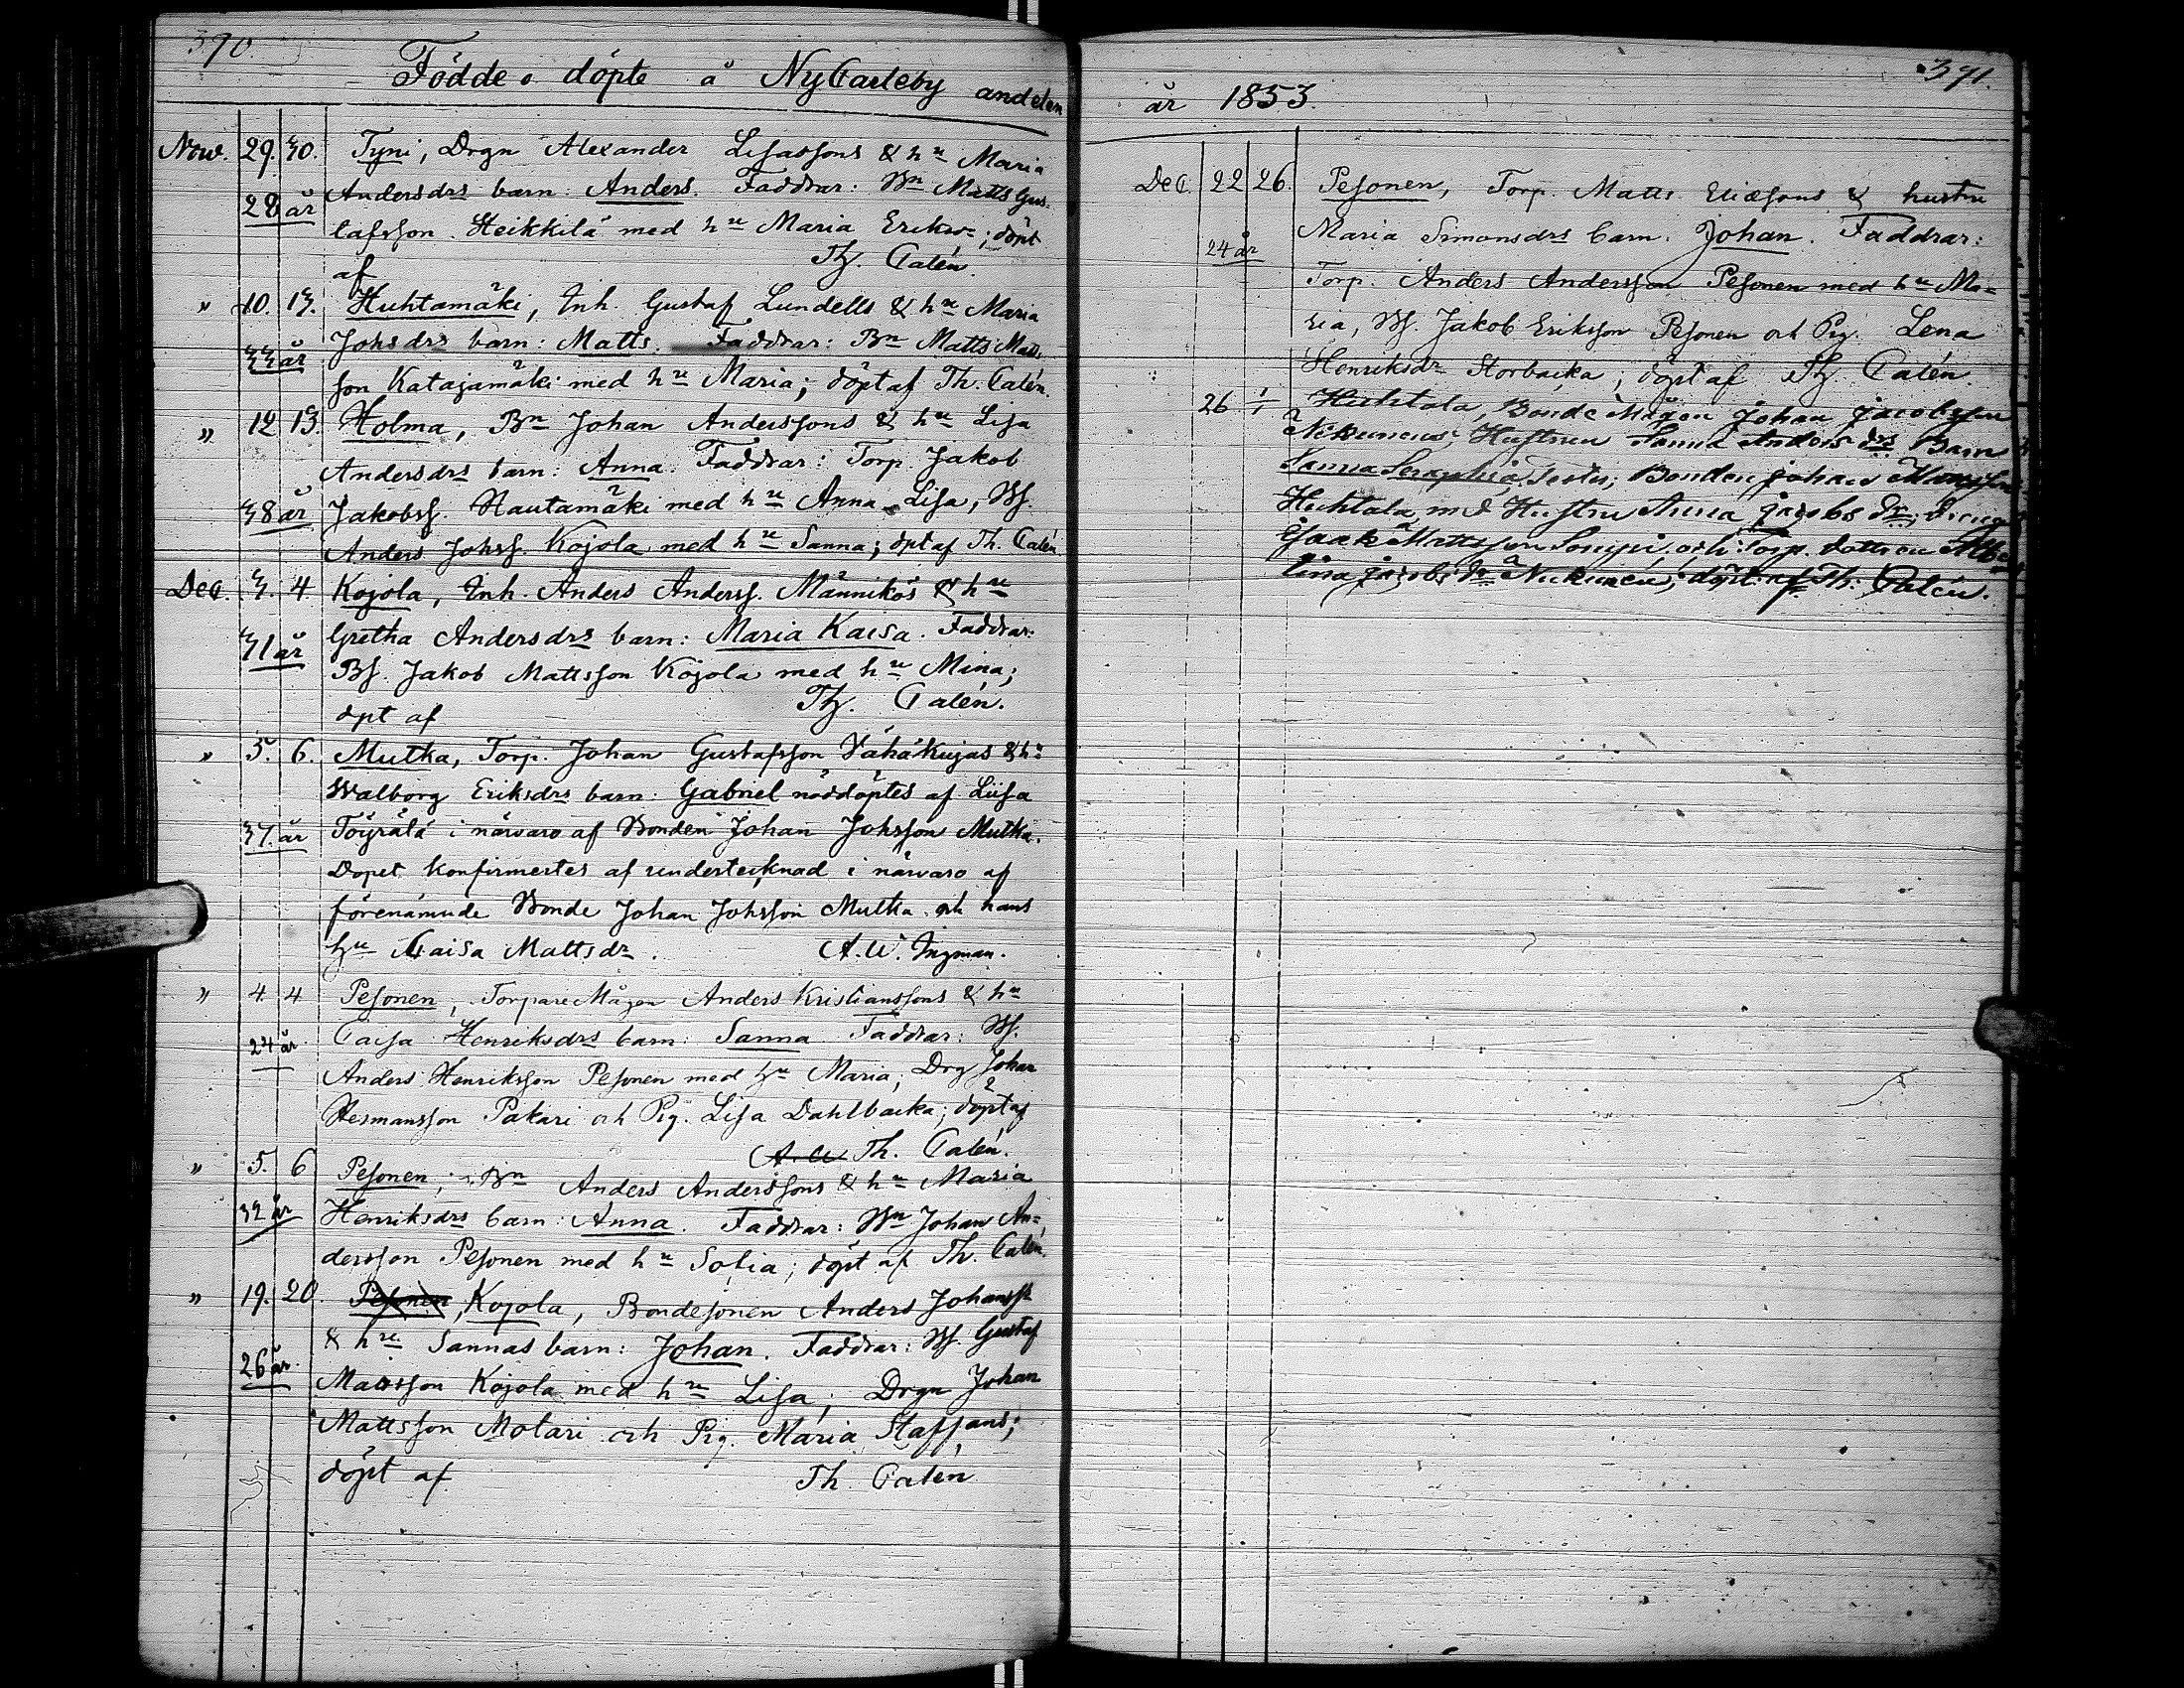 390.
Födde o döpte å NyCarleby andelen
Now. 29. 30. Tyni, Drgn Alexander Lisassons & hu Maria
28 år Andersdrs barn: Anders. Faddrar: Bn Matts Gus-
tafsson Heikkilä med hu Maria Eriksdr; döpt
af Th. Calén.
" 10. 13. Huhtamäki, Inh. Gustaf Lundells & hu Maria
33 år Johsdrs barn: Matts. Faddrar: Bn Matts Matts
son Katajamäki med hu Maria; döpt af Th. Calén.
" 12 13. Holma, Bn Johan Anderssons & hu Lisa
Andersdrs barn: Anna. Faddrar: Torp. Jakob
38 år Jakobss. Hautamäki med hu Anna Lisa, Bs.
Anders Johss. Kojola med hu Sanna; dpt af Th. Calén
Dec. 3. 4 Kojola, Inh. Anders Anderss. Männikös & hu
31 år Gretha Andersdrs barn: Maria Kaisa. Faddrar:
Bs. Jakob Mattsson Kojola med hu Mina;
dpt af Th. Calén.
" 5. 6. Mutka, Torp. Johan Gustafsson Vähäkujas & hu
Walborg Eriksdrs barn: Gabriel nöddöptes af Liisa
37 år Töyrälä i närvaro af Bonden Johan Johsson Mutka.
Dopet konfirmertes af undertecknad i närvaro af
förenämnde Bonde Johan Johsson Mutka och hans
hu Caisa Mattsdr. A.W. Ingman.
" 4. 4 Pesonen, Torpare Mågen Anders Kristianssons & hu
24 år. Caisa Henriksdrs barn: Sanna. Faddrar: Bs.
Anders Henriksson Pesonen med hu Maria; Drg Johan
Hermansson Pakari och Pig. Lisa Dahlbacka; döpt af
A.W Th. Calén.
" 5. 6 Pesonen, Bn Anders Anderssons & hu Maria
32 år Henriksdrs barn: Anna. Faddrar: Bn Johan An-
dersson Pesonen med hu Sofia; döpt af Th. Calén.
" 19. 20. Pesonen, Kojola, Bondesonen Anders Johanss
& hu Sannas barn: Johan. Faddrar: Bs. Gustaf
26 år. Matsson Kojola med hu Lisa; Drgn Johan
Mattsson Molari och Pig. Maria Staffans;
döpt af Th. Calén
391.
år 1853.
Dec. 22 26. Pesonen, Torp. Matts Eliæsons & hustru
24 år Maria Simonsdrs barn. Johan. Faddrar:
Torp. Anders Andersson Pesonen med hu Ma-
ria, Bs. Jakob Eriksson Pesonen och Pig. Lena
Henriksdr Storbacka; döpt af Th. Calén.
26 1/1 Huhtala, Bonde Mågen Johan Jacobsson
Hustrun Sanna Andersdrs Barn
Sanna Seraphia, Testes; Bonden Johan
Huhtala med Hustru Anna Jacobs dr; Dreng
Isaak Mattsson och Torp. dottren Albe-
tina Jacobs dr; döpt af Th: Calén.